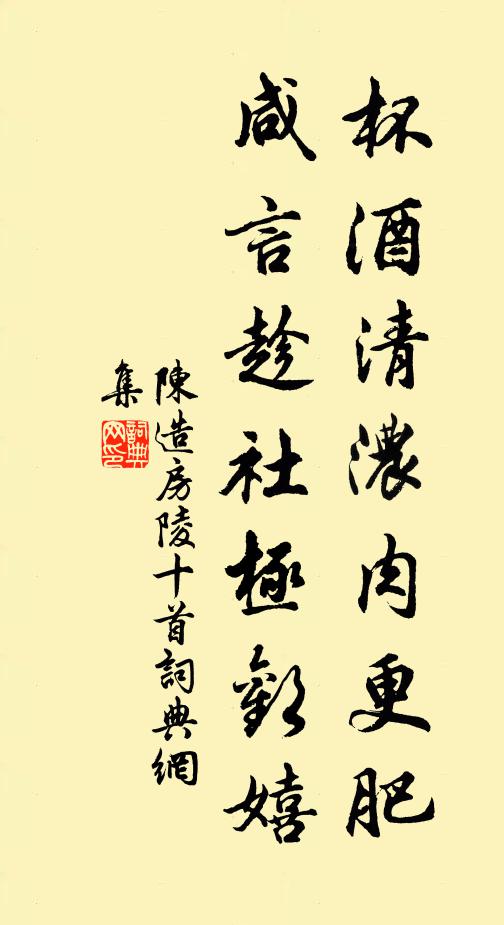 杯酒清濃肉更肥
咸言趁社極歡嬉
陳造房陵十首詞典網
集
詞典
网印